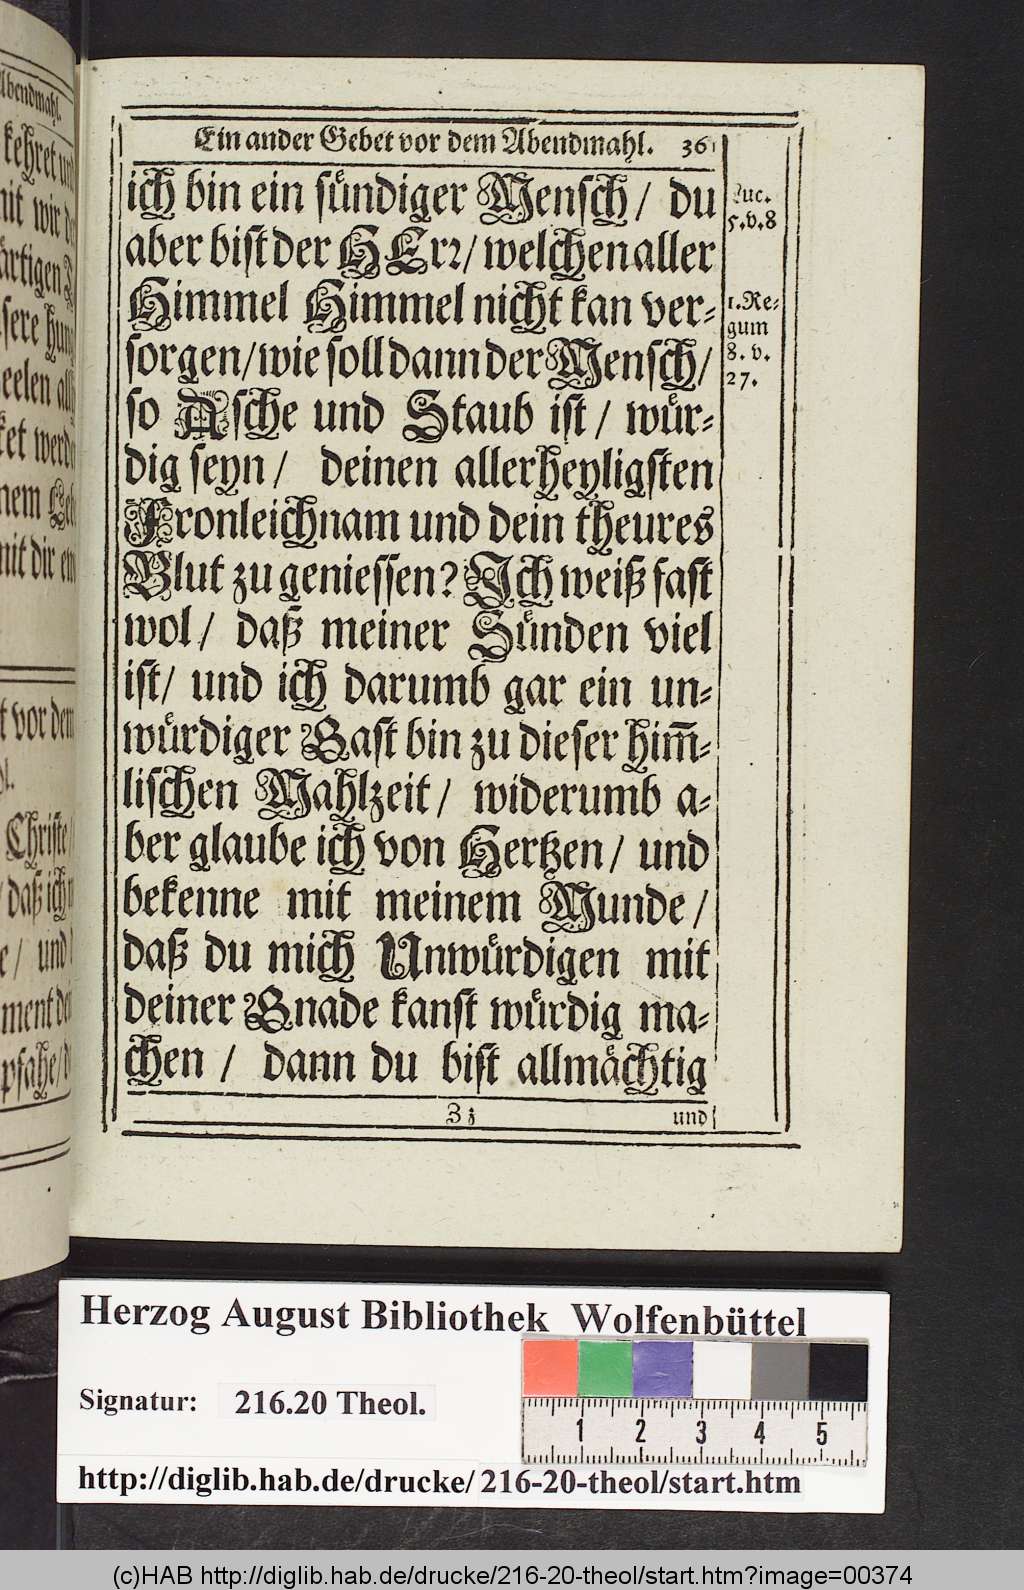 Abendmahl.
kehret und
mit wir
ket werde
mit dir
vor dem
Christe/
daß ich
und
ment
pfahe/
Ein ander Gebet vor dem Abendmahl. 36
ich bin ein sündiger Mensch/ du
aber bist der HErꝛ/ welchen aller
Himmel Himmel nicht kan ver-
sorgen/ wie soll dann der Mensch/
so Asche und Staub ist/ wür-
dig seyn/ deinen allerheyligsten
Fronleichnam und dein theures
Blut zu geniessen? Ich weiß fast
wol/ daß meiner Sünden viel
ist/ und ich darumb gar ein un-
würdiger Gast bin zu dieser him̃-
lischen Mahlzeit/ widerumb a-
ber glaube ich von Hertzen/ und
bekenne mit meinem Munde/
daß du mich Unwürdigen mit
deiner Gnade kanst würdig ma-
chen/ dann du bist allmächtig
Zz und
Luc.
5.v.8
1. Re-
gum
8. v.
27.
Herzog August Bibliothek Wolfenbüttel
Signatur: 216.20 Theol.
1 2 3 4 5
http://diglib.hab.de/drucke/216-20-theol/start.htm
(c)HAB http://diglib.hab.de/drucke/216-20-theol/start.htm?image=00374